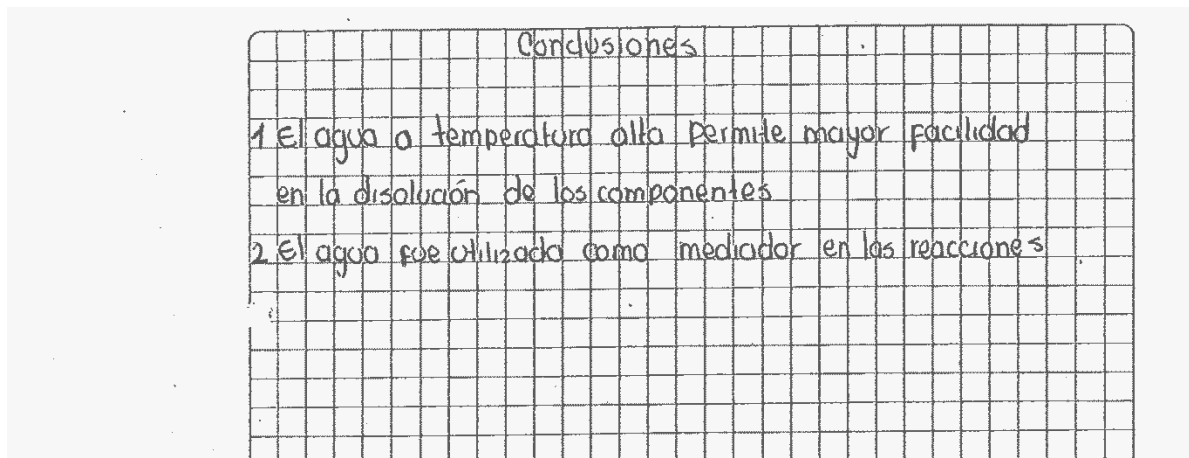 Conclusiones
1 El agua a temperatura alta permite mayor facilidad
en la disolución de los componentes
2 El agua fue utilizada como mediador en las reacciones